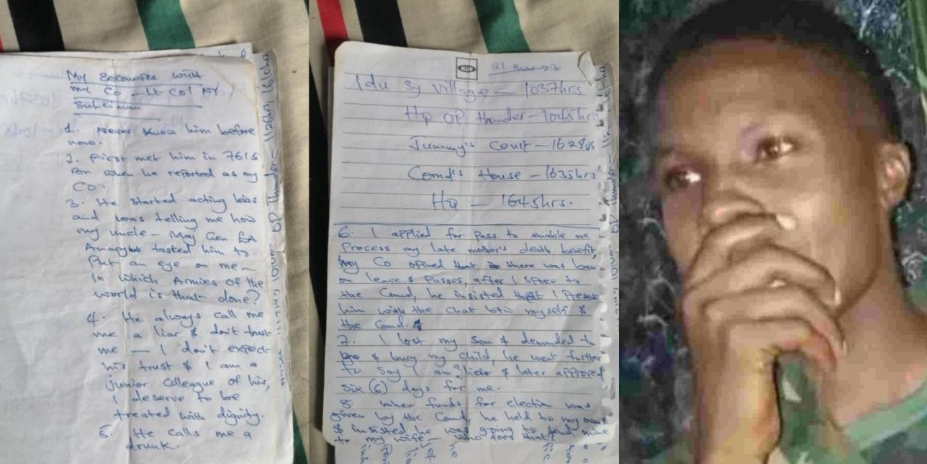 My Encounter with
my Co - Lt Col AY
Suleiman
1. Never knew him before
now.
2. First met him in 761 S
Bn when he reported as my
CO.
3. He started acting
and was telling me how
my uncle - Maj Gen GA
tasked him to
Put an eye on me -
In which Armies of the
world is that done?
4. He always call me
me a liar & don't trust
me - I don't expect
his trust & I am a
junior Colleague of his,
I deserve to be
treated with dignity.
5. He calls me a
drunk.
21 Mar 23
Idu Sy Village - 1037hrs
Hq OP Thunder - 1045hrs
Jummy's Court - 1628hrs
Comd's House - 1635hrs
HQ - 1645hrs.
6. I applied for Pass to enable me
Process my late mother's death benefit,
my Co opined that there was ban
on leave & Passes, after I spoke to
the Comd, he insisted that I Present
him with the Chat btw myself &
the Comd.
7. I lost my Son & demanded to
& bury my child, he went further
to say I am a liar & later approved
six (6) days for me.
8. When funds for election was
given by the Comd, he held to my own
& insisted he was going to send mine
to my wife - who does that?